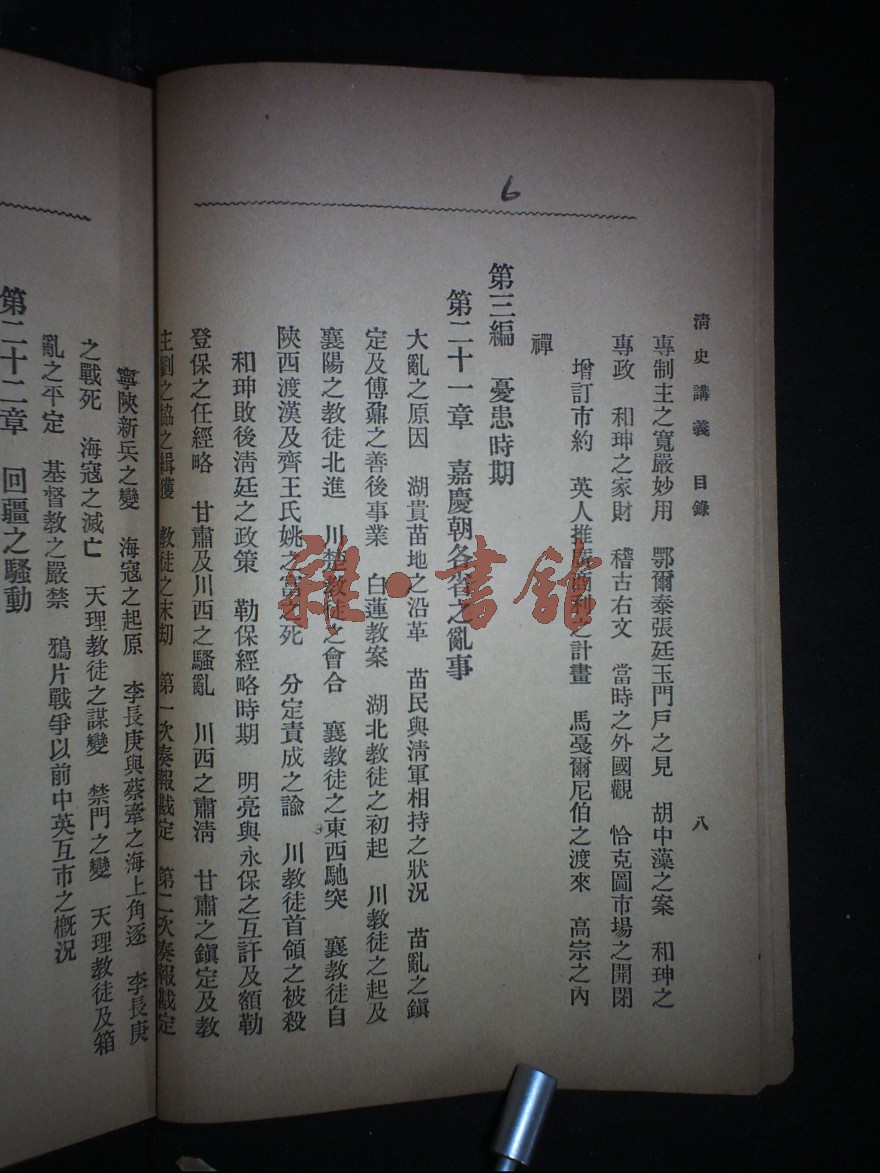 6
清史講義 目錄 八
專制主之寬嚴妙用 鄂爾泰張廷玉門戶之見 胡中藻之案 和珅之
專政 和珅之家財 稽古右文 當時之外國觀 恰克圖市場之開閉
增訂市約 英人推廣商利之計畫 馬戛爾尼伯之渡來 高宗之內
禪
第三編 憂患時期
第二十一章 嘉慶朝各省之亂事
大亂之原因 湖貴苗地之沿革 苗民與淸軍相持之狀況 苗亂之鎭
定及傅鼐之善後事業 白蓮教案 湖北教徒之初起 川教徒之起及
襄陽之教徒北進 川楚教徒之會合 襄教徒之東西馳突 襄教徒自
陝西渡漢及齊王氏姚之富之死 分定責成之諭 川教徒首領之被殺
和珅敗後淸廷之政策 勒保經略時期 明亮與永保之互訐及額勒
登保之任經略 甘肅及川西之騷亂 川西之肅淸 甘肅之鎭定及教
主劉之協之緝獲 教徒之末劫 第一次奏報戡定 第二次奏報戡定
寧陝新兵之變 海寇之起原 李長庚與蔡牽之海上角逐 李長庚
之戰死 海寇之滅亡 天理教徒之謀變 禁門之變 天理教徒及箱
亂之平定 基督教之嚴禁 鴉片戰爭以前中英互市之槪況
第二十二章 回疆之騷動
雜·書館